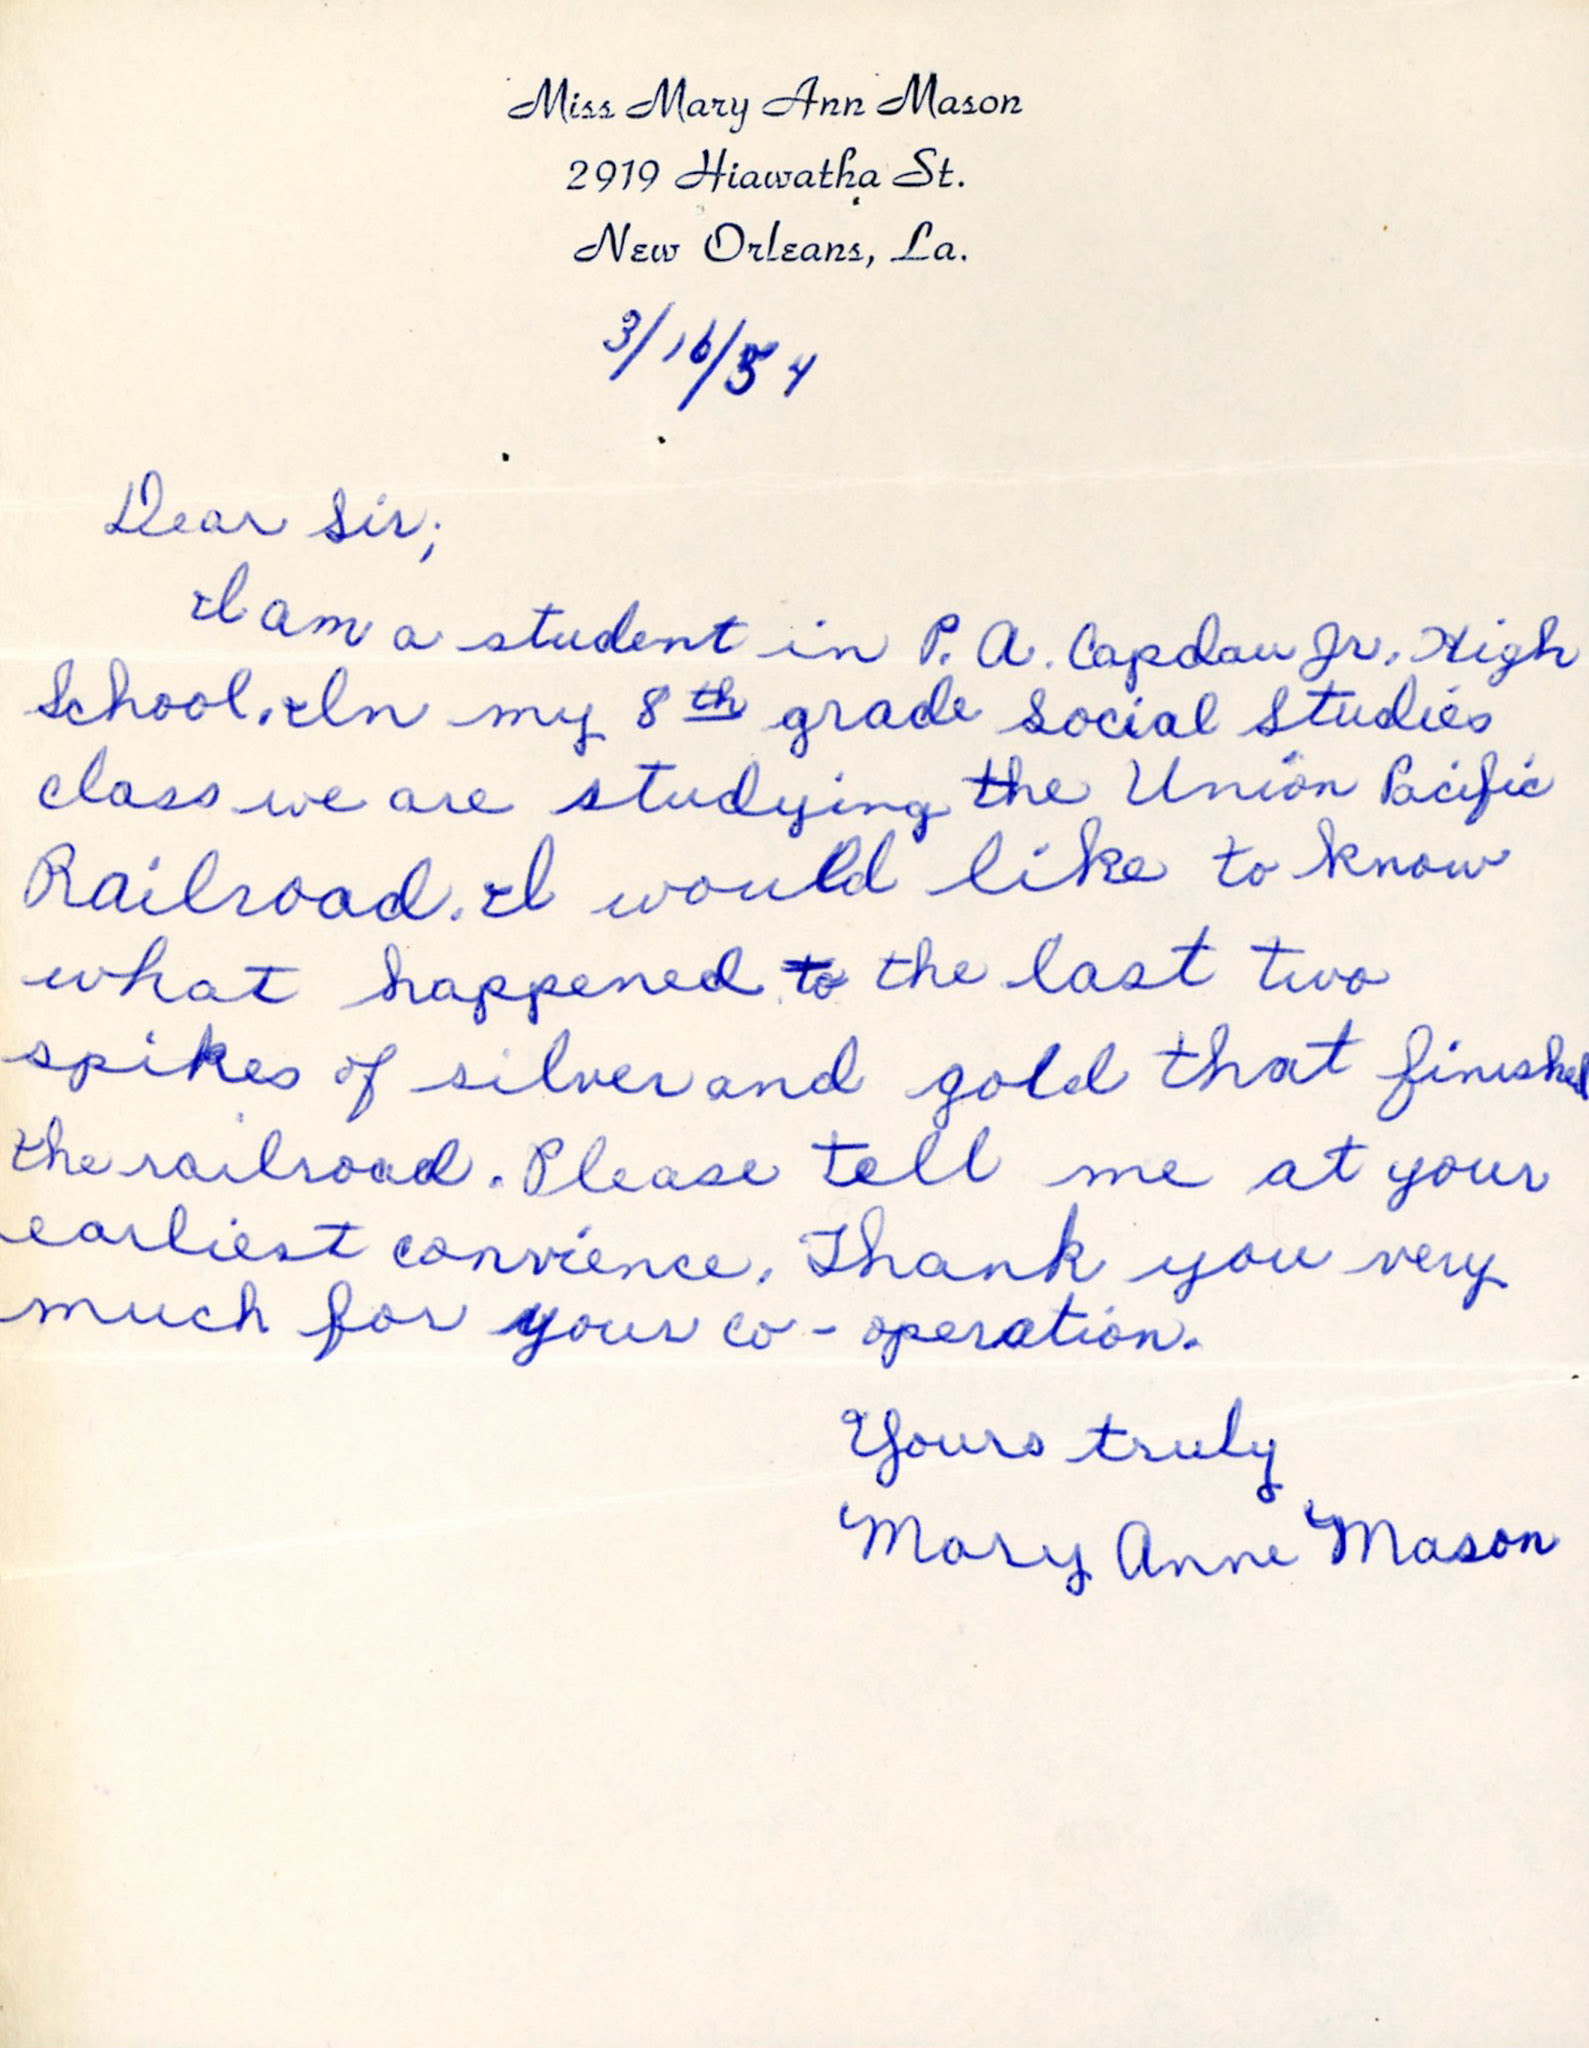 Miss Mary Ann Mason
2919 Hiawatha St.
New Orleans, La.
3/16/54
Dear Sir;
I am a student in P. A. Capdau Jr. High
School. In my 8th grade Social Studies
class we are studying the Union Pacific
Railroad. I would like to know
what happened to the last two
spikes of silver and gold that finished
the railroad. Please tell me at your
earliest convience. Thank you very
much for your co-operation.
Yours truly
Mary Anne Mason